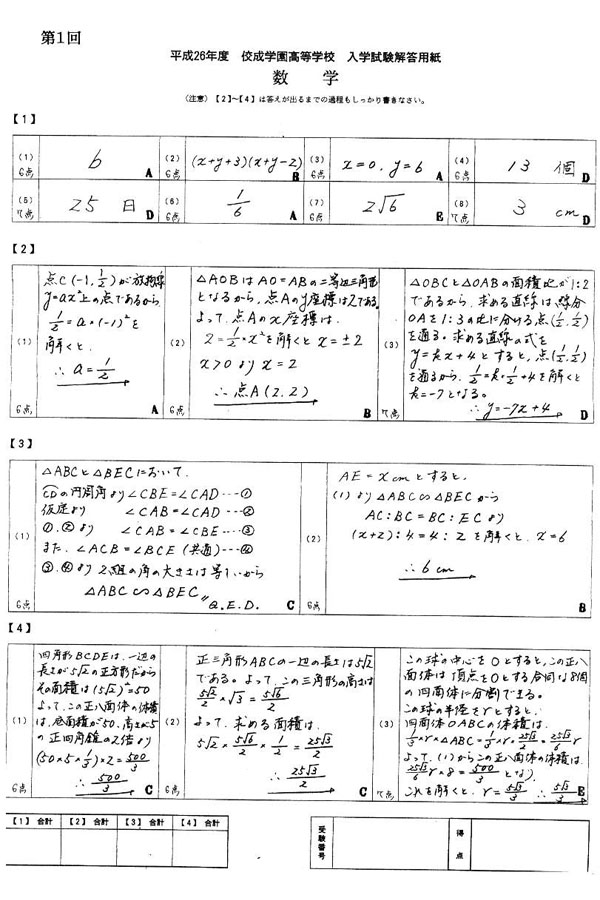 第1回
平成26年度 佼成学園高等学校 入学試験解答用紙
数 学
(注意)【2】~【4】は答えが出るまでの過程もしっかり書きなさい。
【1】
(1) 6点 6 A (2) 6点 (x+y+3)(x+y-2) B (3) 6点 x=0, y=6 A (4) 6点 13 個 D
(5) 7点 25 日 D (6) 6点 1/6 A (7) 6点 2√6 E (8) 7点 3 cm D
【2】
(1)
点C(-1, 1/2)が放物線
y=ax²上の点であるから
1/2=a×(-1)²を
解くと、
∴ a=1/2
6点 A
(2)
△AOBはAO=ABの二等辺三角形
となるから、点Aのy座標は2である。
よって、点Aのx座標は、
2=1/2×x²を解くと x=±2
x>0より x=2
∴ 点A(2, 2)
6点 B
(3)
△OBCと△OABの面積比が1:2
であるから、求める直線は線分
OAを1:3の比に分ける点(1/2, 1/2)
を通る。求める直線の式を
y=kx+4とすると、点(1/2, 1/2)
を通るから、1/2=k・1/2+4を解くと
k=-7となる。
∴ y=-7x+4
7点 D
【3】
(1)
△ABCと△BECにおいて、
CDの円周角より ∠CBE=∠CAD…①
仮定より ∠CAB=∠CAD…②
①,②より ∠CAB=∠CBE…③
また、∠ACB=∠BCE(共通)…④
③,④より 2組の角の大きさは等しいから
△ABC∽△BEC〃
Q.E.D.
6点 C
(2)
AE=x cmとすると、
(1)より△ABC∽△BECから
AC:BC=BC:ECより
(x+2):4=4:2を解くと、x=6
∴ 6 cm
6点 B
【4】
(1)
四角形BCDEは、一辺の
長さが5√2の正方形だから
その面積は(5√2)²=50
よって、この正八面体の体積
は、底面積が50、高さが5
の正四角錐の2倍より
(50×5×1/3)×2=500/3
∴ 500/3
6点 C
(2)
正三角形ABCの一辺の長さは5√2
である。よって、この三角形の高さは
5√2/2×√3=5√6/2
よって、求める面積は、
5√2×5√6/2×1/2=25√3/2
∴ 25√3/2
6点 C
(3)
この球の中心をOとすると、この正八
面体は頂点をOとする合同な8個
の四面体に分割できる。
この球の半径をrとすると、
四面体OABCの体積は、
1/3×r×△ABC=1/3×r×25√3/2=25√3/6 r
よって、(1)からこの正八面体の体積は、
25√3/6 r×8=500/3 となり
これを解くと、r=5√3/3 ∴ 5√3/3
7点 E
【1】合計 【2】合計 【3】合計 【4】合計
受験番号
得点